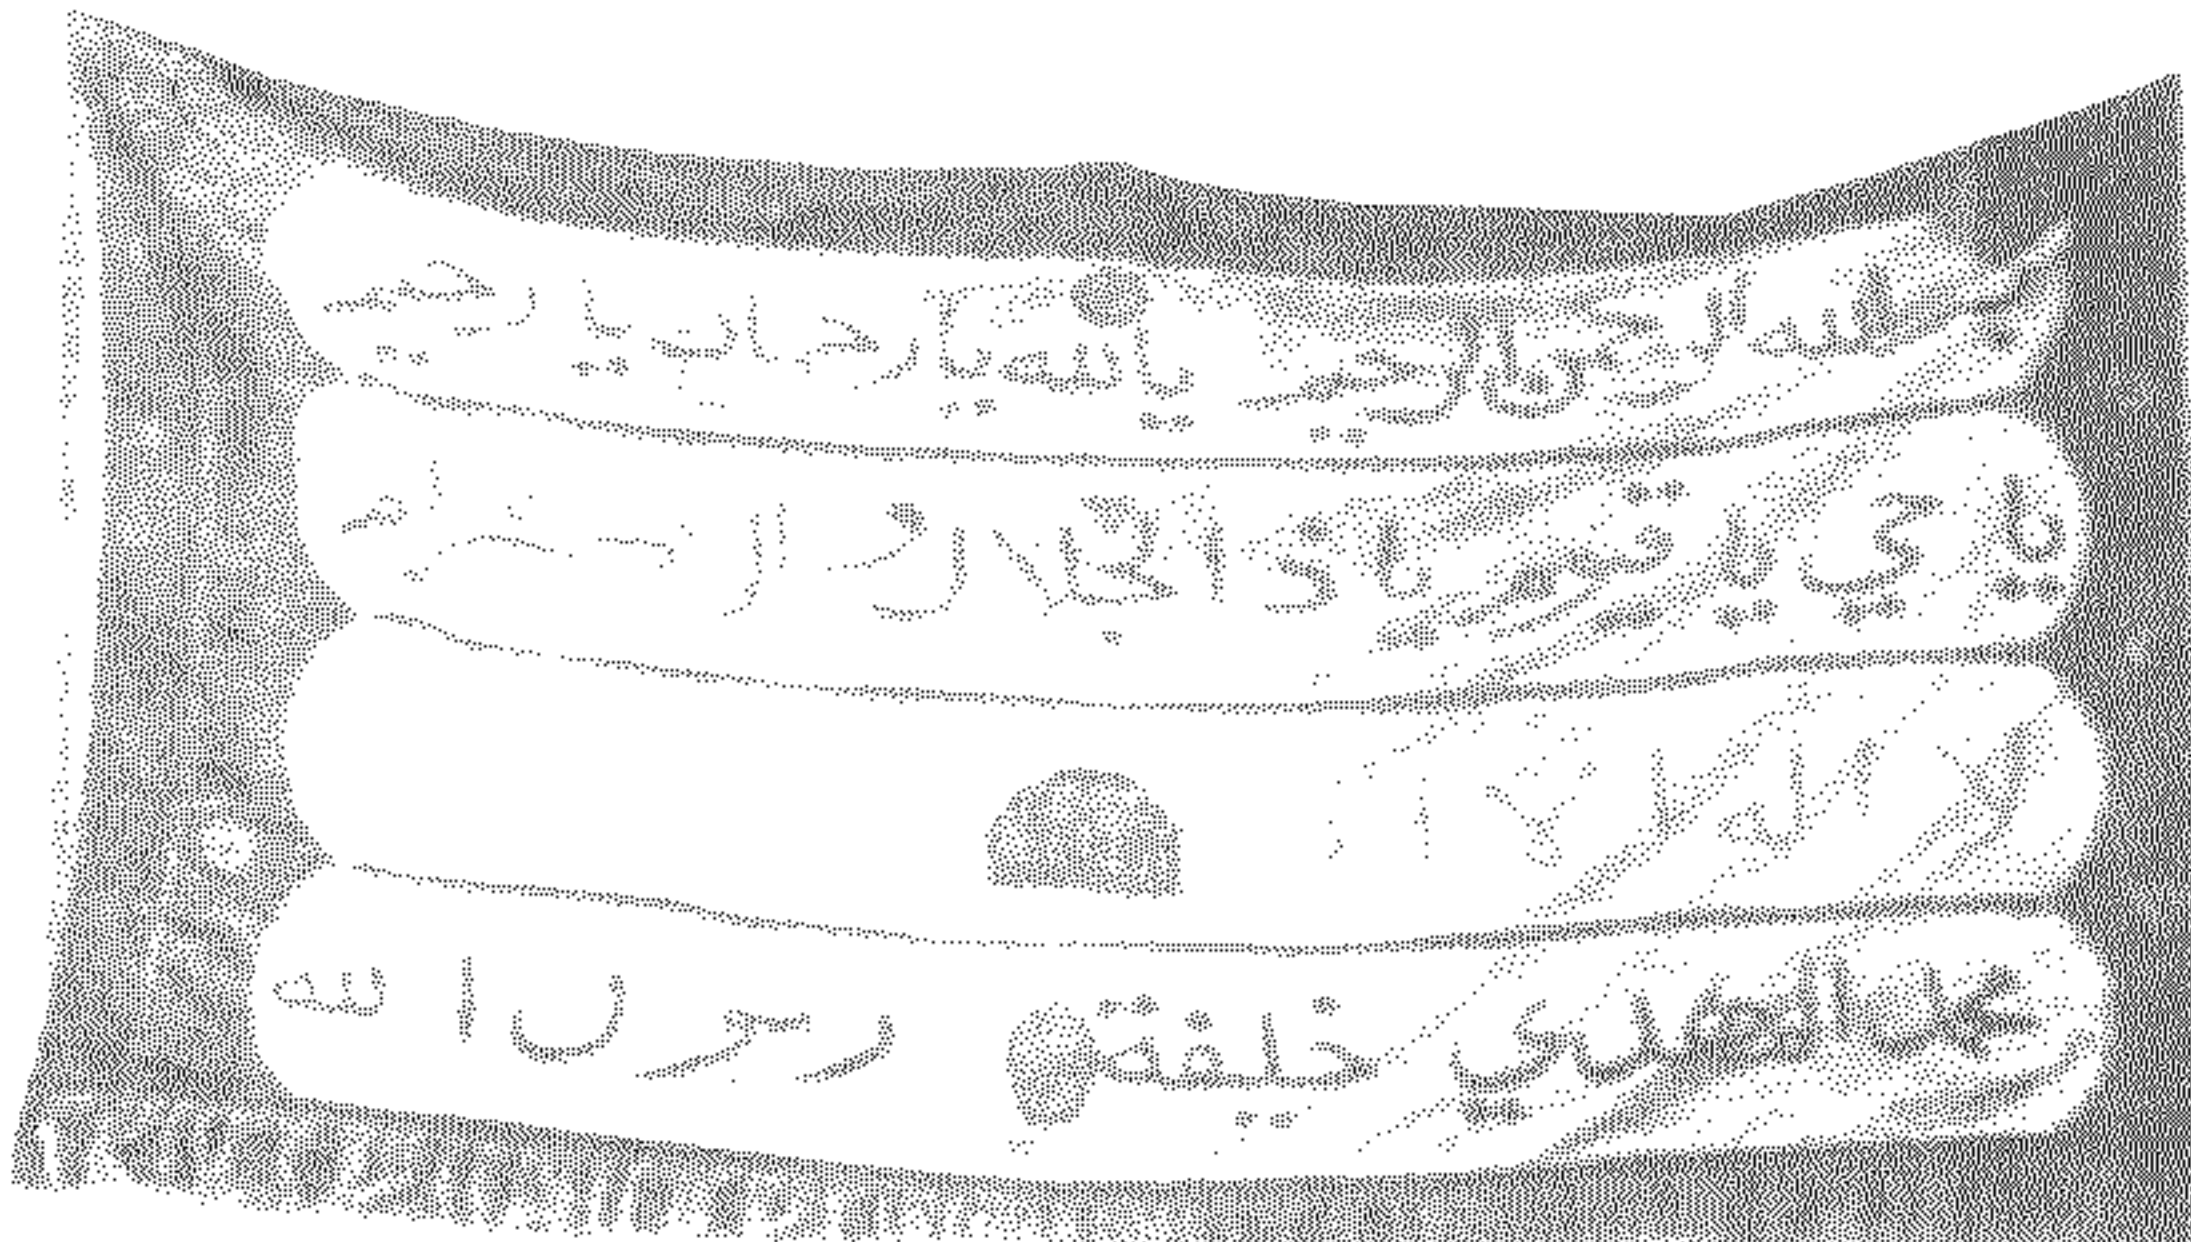 بسم الله الرحمان الرحيم يا الله يا رحمان يا رحيم
يا حي يا قيوم يا ذا الجلال
لا اله الا
محمد المهدي خليفة رسول الله